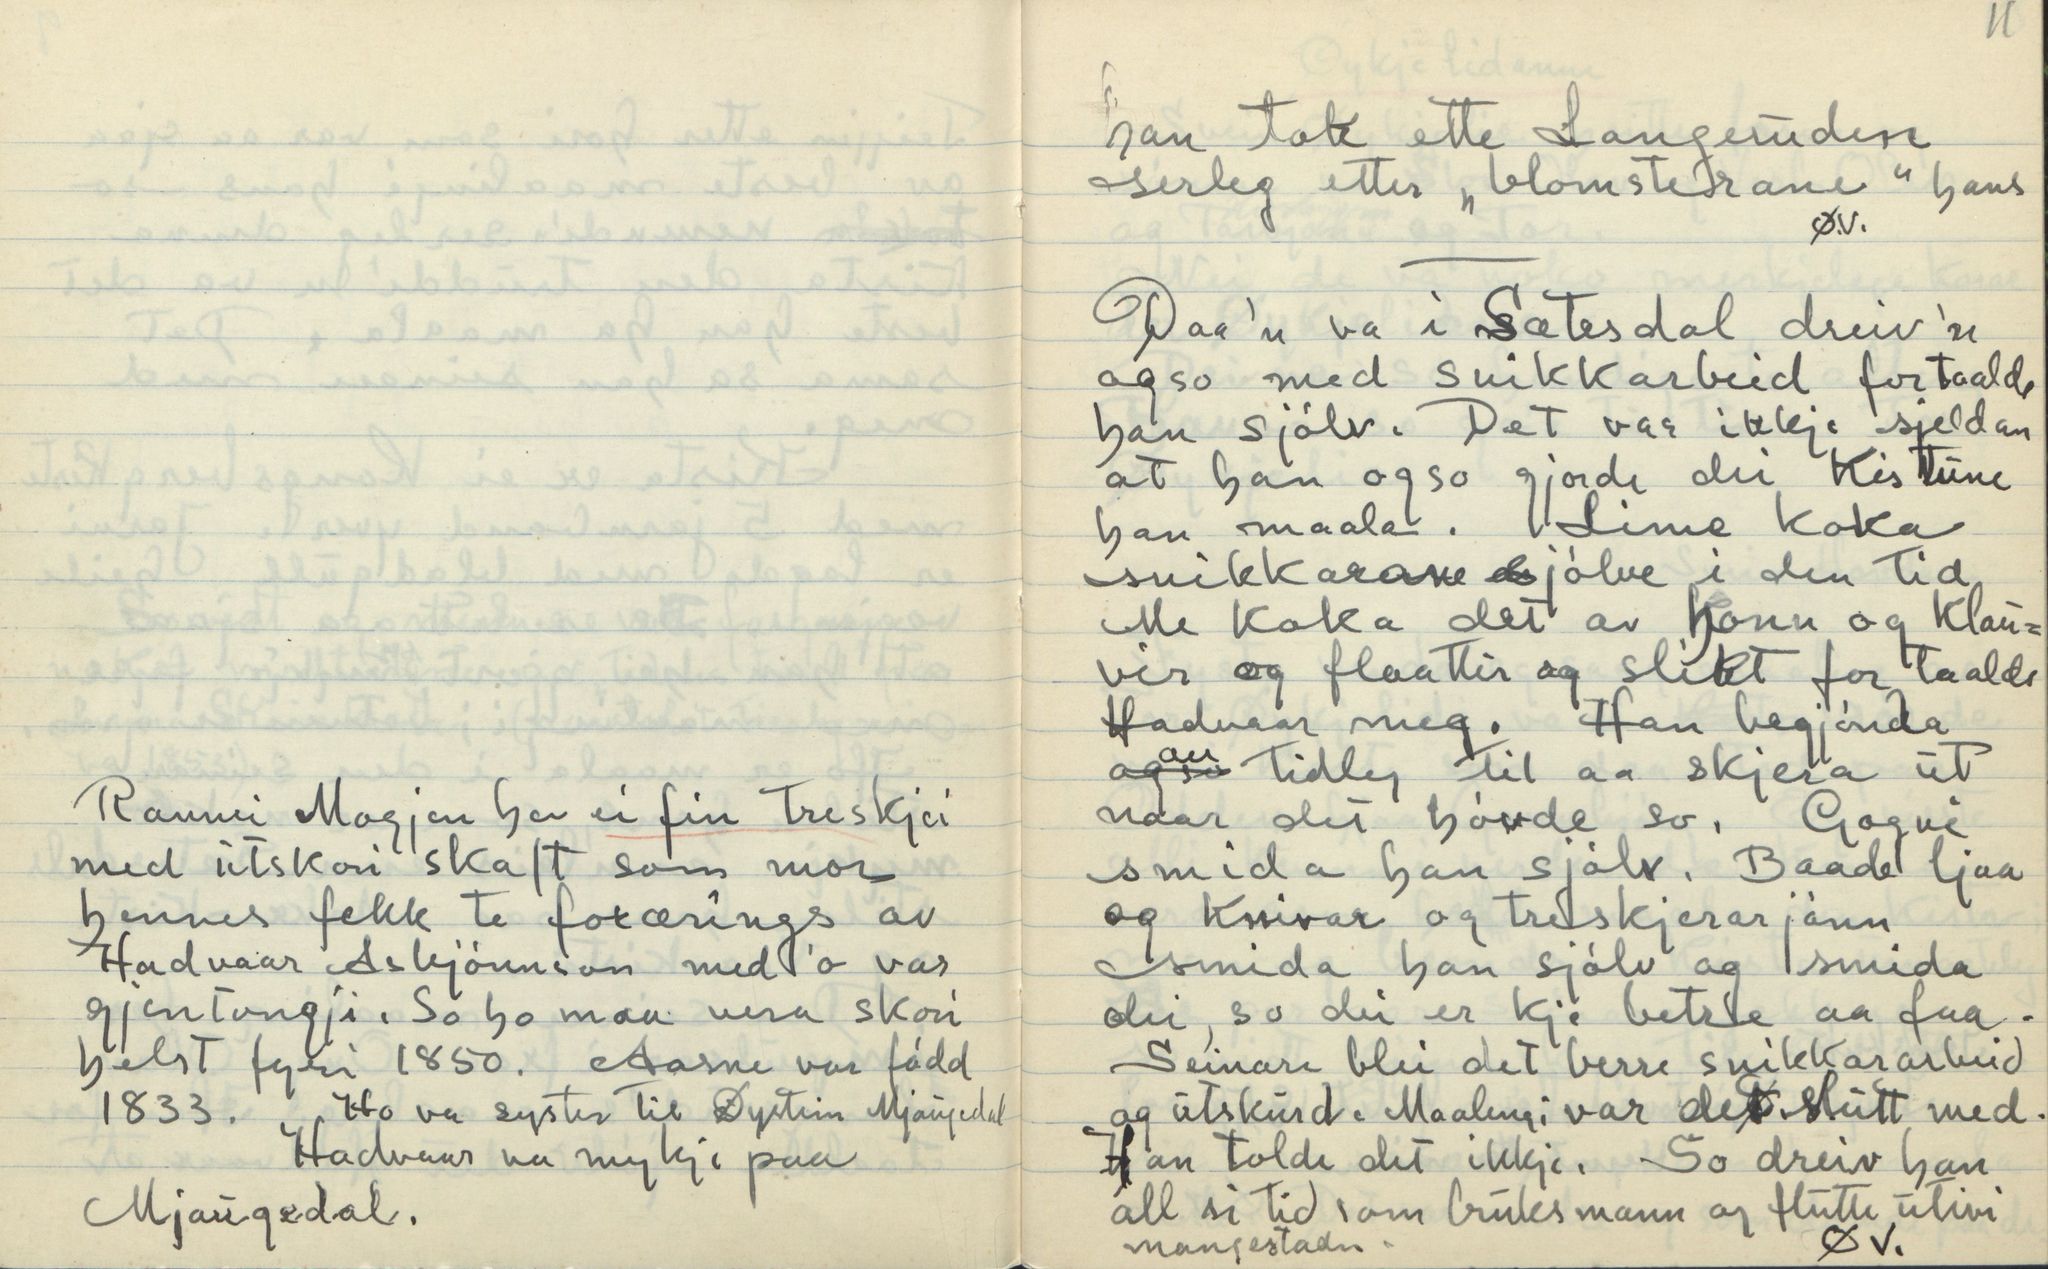 Rannei Mogjen har ei fin treskjei
med ütskori skaft som mor
hennes fekk te forærings av
Hadvaar Askjónnson med 'o var
gjentungji. So ho maa vera skori
helst fyri 1850. Aasne var fódd
1833. Ho va syster til Øystein Mjaugedal
Hadvaar va mykji paa
Mjaugedal.
11
han tok ette Langerüden
serleg etter „blomsterane" hans
Ø.V.
Daa'n va i Sætesdal dreiv'n
ogso med snikkarbeid fortaalde
han sjólv. Det var ikkje sjeldan
at han ogso gjorde dei kistüne
han maala. Lime koka
snikkarane sjólve i den tid
Me koka det av honn og klau=
vir og flaattir og slikt fortaalde
Hadvaar meg. Han begjónda
au tidleg til aa skjera üt
naar det hóvde so. Gogni
smida han sjólv. Baade ljaa
og knivar og treskjerarjànn
smida han sjólv og smida
dei, so dei er kje betrie aa faa.
Seinare blei det berre snikkararbeid
og ütskürd. Maalingi var det slütt med.
Han tolde det ikkje. So dreiv han
all si tid som brüksmann og flütte ütivi
mangestadn.
Ø V.